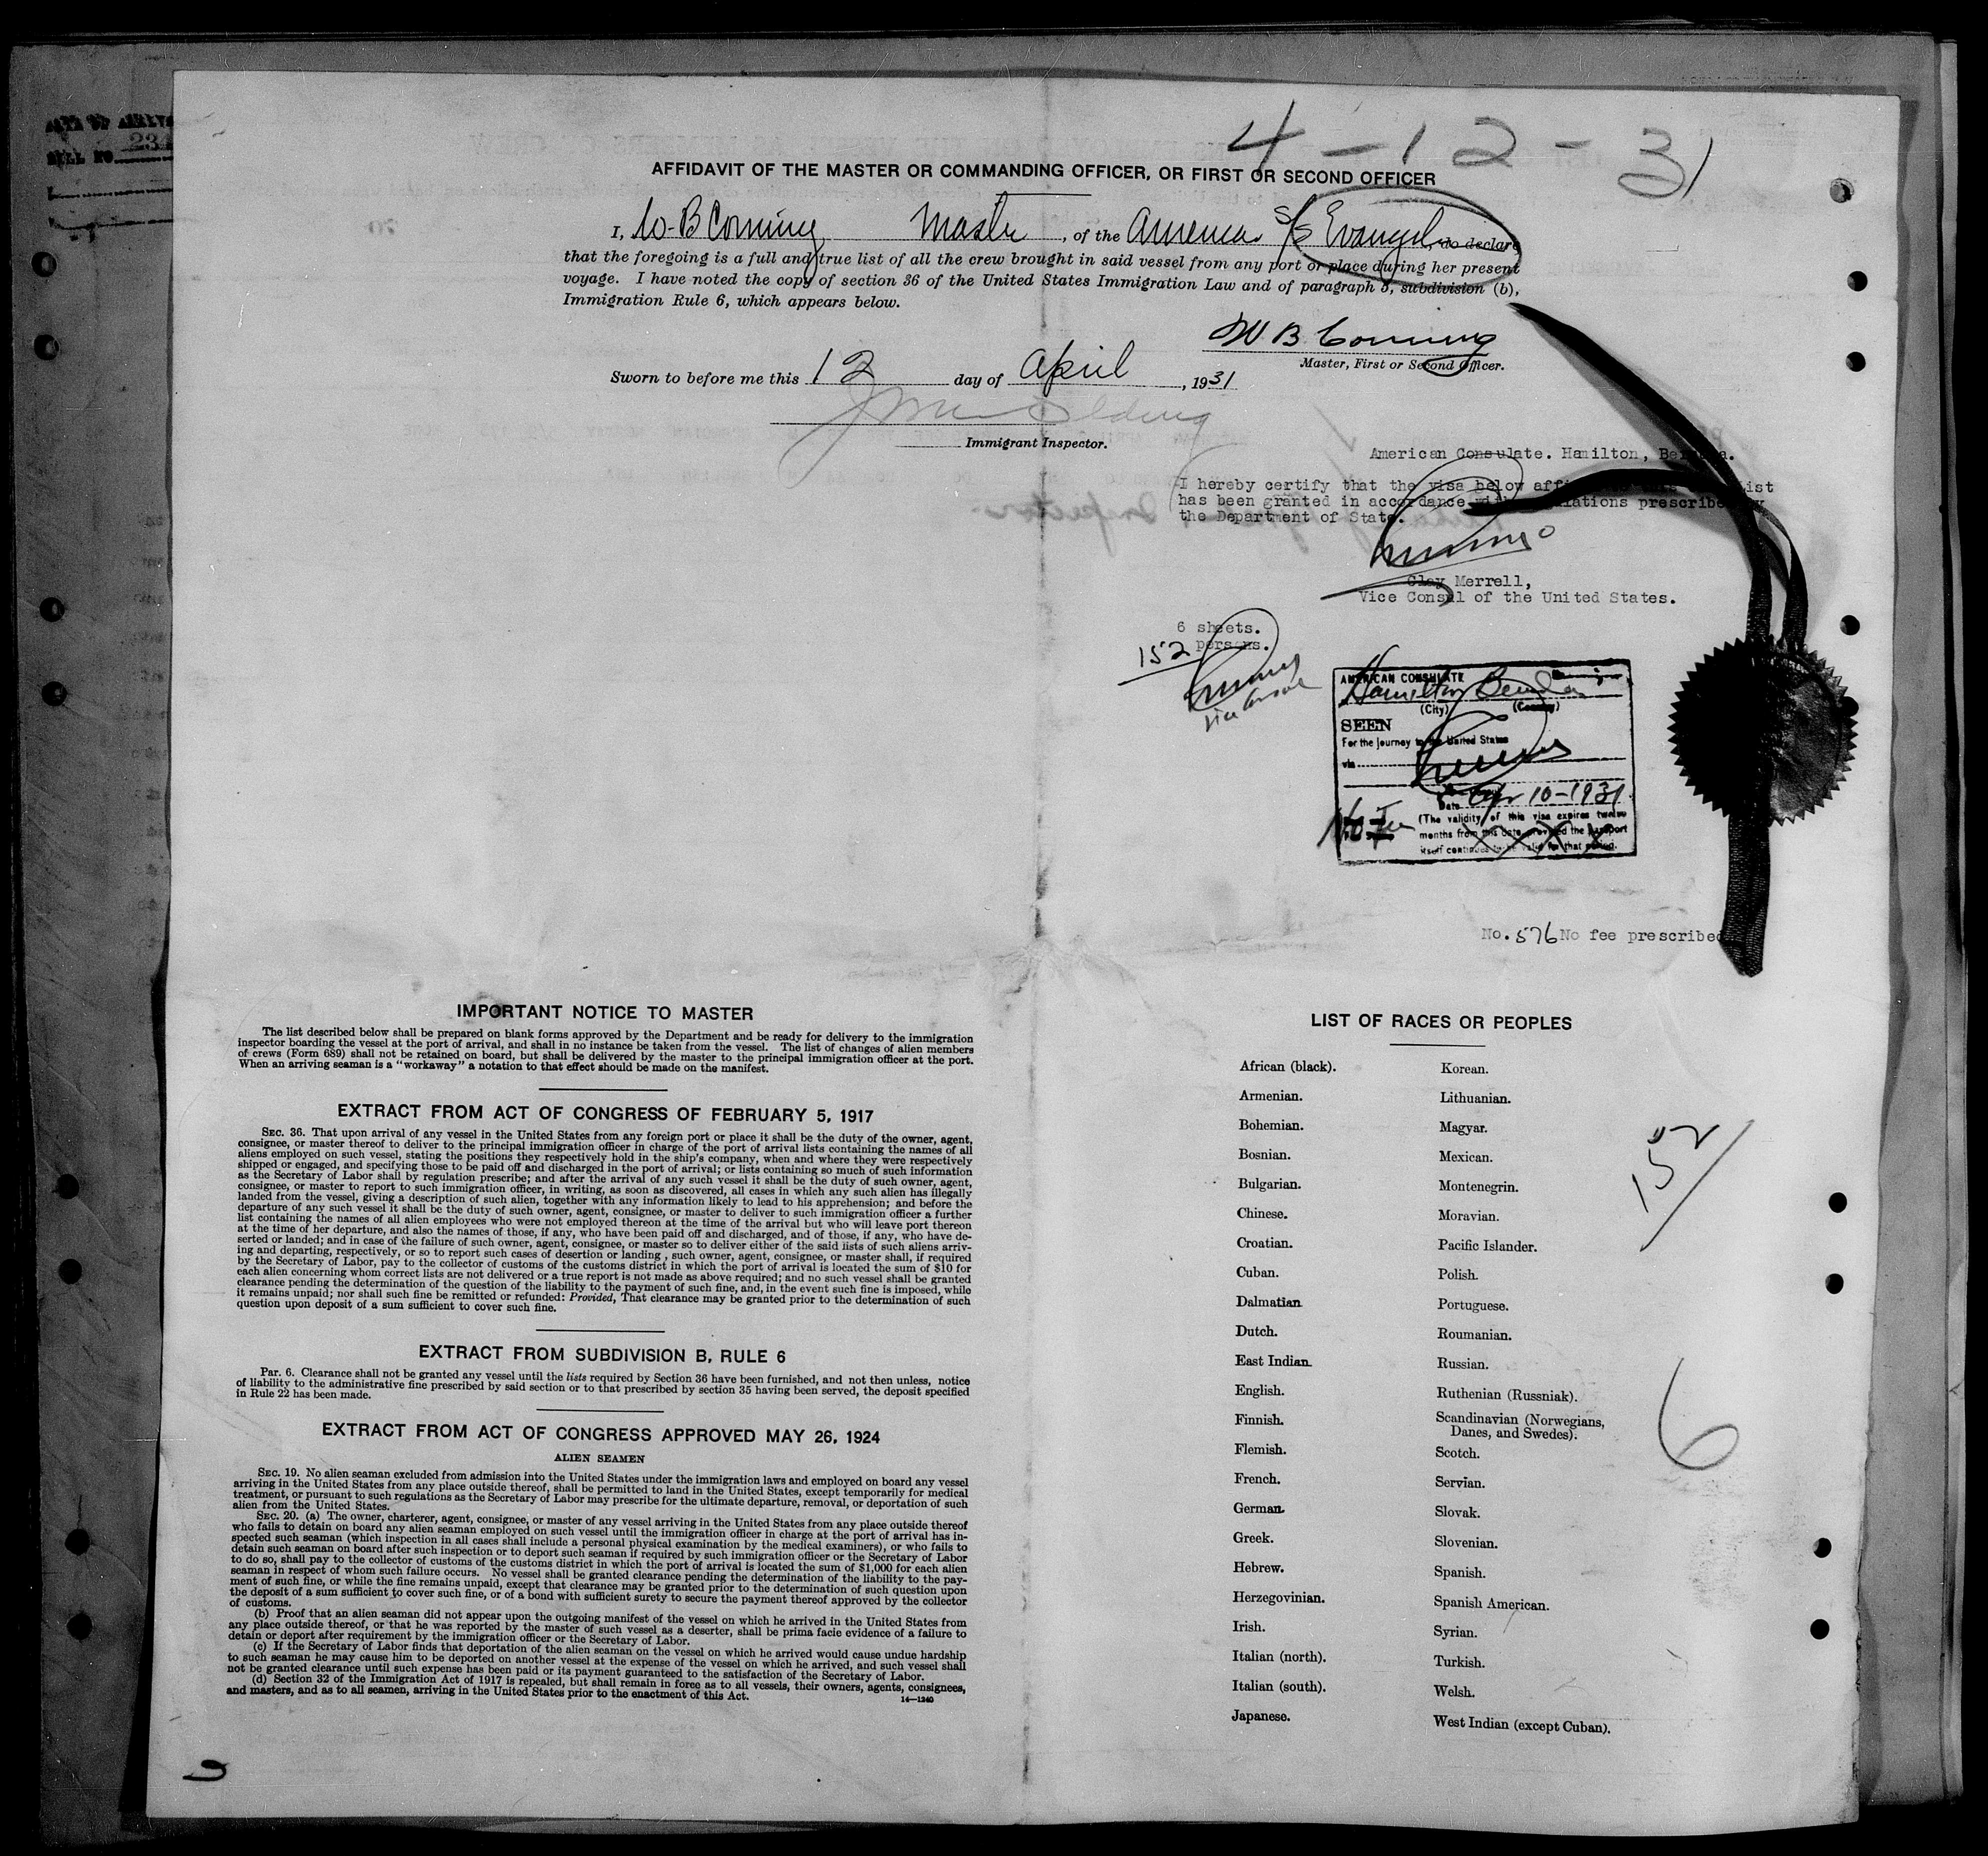 4-12-31
AFFIDAVIT OF THE MASTER OR COMMANDING OFFICER, OR FIRST OR SECOND OFFICER
I, W. B Corning Master, of the American S/S Evangeline do declare
that the foregoing is a full and true list of all the crew brought in said vessel from any port or place during her present
voyage. I have noted the copy of section 36 of the United States Immigration Law and of paragraph 5, subdivision (b),
Immigration Rule 6, which appears below.
W B Corning
Master, First or Second Officer.
Sworn to before me this 12 day of April, 1931
Immigrant Inspector.
American Consulate. Hamilton, Bermuda.
I hereby certify that the visa below list
has been granted in accordance with regulations prescribed by
the Department of State.
Clay Merrell,
Vice Consul of the United States.
6 sheets.
152 persons.
Vice Consul
AMERICAN CONSULATE
Hamilton Bermuda
(City) (Country)
SEEN
For the journey to the United States
via
Date Apr 10-1931
No Fee
(The validity of this visa expires twelve
months from this date provided the passport
itself continues to be valid for that period.
No. 576 No fee prescribed
IMPORTANT NOTICE TO MASTER
The list described below shall be prepared on blank forms approved by the Department and be ready for delivery to the immigration
inspector boarding the vessel at the port of arrival, and shall in no instance be taken from the vessel. The list of changes of alien members
of crews (Form 689) shall not be retained on board, but shall be delivered by the master to the principal immigration officer at the port.
When an arriving seaman is a "workaway" a notation to that effect should be made on the manifest.
EXTRACT FROM ACT OF CONGRESS OF FEBRUARY 5, 1917
SEC. 36. That upon arrival of any vessel in the United States from any foreign port or place it shall be the duty of the owner, agent,
consignee, or master thereof to deliver to the principal immigration officer in charge of the port of arrival lists containing the names of all
aliens employed on such vessel, stating the positions they respectively hold in the ship's company, when and where they were respectively
shipped or engaged, and specifying those to be paid off and discharged in the port of arrival; or lists containing so much of such information
as the Secretary of Labor shall by regulation prescribe; and after the arrival of any such vessel it shall be the duty of such owner, agent,
consignee, or master to report to such immigration officer, in writing, as soon as discovered, all cases in which any such alien has illegally
landed from the vessel, giving a description of such alien, together with any information likely to lead to his apprehension; and before the
departure of any such vessel it shall be the duty of such owner, agent, consignee, or master to deliver to such immigration officer a further
list containing the names of all alien employees who were not employed thereon at the time of the arrival but who will leave port thereon
at the time of her departure, and also the names of those, if any, who have been paid off and discharged, and of those, if any, who have de-
serted or landed; and in case of the failure of such owner, agent, consignee, or master so to deliver either of the said lists of such aliens arriv-
ing and departing, respectively, or so to report such cases of desertion or landing , such owner, agent, consignee, or master shall, if required
by the Secretary of Labor, pay to the collector of customs of the customs district in which the port of arrival is located the sum of $10 for
each alien concerning whom correct lists are not delivered or a true report is not made as above required; and no such vessel shall be granted
clearance pending the determination of the question of the liability to the payment of such fine, and, in the event such fine is imposed, while
it remains unpaid; nor shall such fine be remitted or refunded: Provided, That clearance may be granted prior to the determination of such
question upon deposit of a sum sufficient to cover such fine.
EXTRACT FROM SUBDIVISION B, RULE 6
Par. 6. Clearance shall not be granted any vessel until the lists required by Section 36 have been furnished, and not then unless, notice
of liability to the administrative fine prescribed by said section or to that prescribed by section 35 having been served, the deposit specified
in Rule 22 has been made.
EXTRACT FROM ACT OF CONGRESS APPROVED MAY 26, 1924
ALIEN SEAMEN
SEC. 19. No alien seaman excluded from admission into the United States under the immigration laws and employed on board any vessel
arriving in the United States from any place outside thereof, shall be permitted to land in the United States, except temporarily for medical
treatment, or pursuant to such regulations as the Secretary of Labor may prescribe for the ultimate departure, removal, or deportation of such
alien from the United States.
SEC. 20. (a) The owner, charterer, agent, consignee, or master of any vessel arriving in the United States from any place outside thereof
who fails to detain on board any alien seaman employed on such vessel until the immigration officer in charge at the port of arrival has in-
spected such seaman (which inspection in all cases shall include a personal physical examination by the medical examiners), or who fails to
detain such seaman on board after such inspection or to deport such seaman if required by such immigration officer or the Secretary of Labor
to do so, shall pay to the collector of customs of the customs district in which the port of arrival is located the sum of $1,000 for each alien
seaman in respect of whom such failure occurs. No vessel shall be granted clearance pending the determination of the liability to the pay-
ment of such fine, or while the fine remains unpaid, except that clearance may be granted prior to the determination of such question upon
the deposit of a sum sufficient to cover such fine, or of a bond with sufficient surety to secure the payment thereof approved by the collector
of customs.
(b) Proof that an alien seaman did not appear upon the outgoing manifest of the vessel on which he arrived in the United States from
any place outside thereof, or that he was reported by the master of such vessel as a deserter, shall be prima facie evidence of a failure to
detain or deport after requirement by the immigration officer or the Secretary of Labor.
(c) If the Secretary of Labor finds that deportation of the alien seaman on the vessel on which he arrived would cause undue hardship
to such seaman he may cause him to be deported on another vessel at the expense of the vessel on which he arrived, and such vessel shall
not be granted clearance until such expense has been paid or its payment guaranteed to the satisfaction of the Secretary of Labor.
(d) Section 32 of the Immigration Act of 1917 is repealed, but shall remain in force as to all vessels, their owners, agents, consignees,
and masters, and as to all seamen, arriving in the United States prior to the enactment of this Act.
14—1240
LIST OF RACES OR PEOPLES
African (black).
Armenian.
Bohemian.
Bosnian.
Bulgarian.
Chinese.
Croatian.
Cuban.
Dalmatian.
Dutch.
East Indian.
English.
Finnish.
Flemish.
French.
German.
Greek.
Hebrew.
Herzegovinian.
Irish.
Italian (north).
Italian (south).
Japanese.
Korean.
Lithuanian.
Magyar.
Mexican.
Montenegrin.
Moravian.
Pacific Islander.
Polish.
Portuguese.
Roumanian.
Russian.
Ruthenian (Russniak).
Scandinavian (Norwegians,
Danes, and Swedes).
Scotch.
Servian.
Slovak.
Slovenian.
Spanish.
Spanish American.
Syrian.
Turkish.
Welsh.
West Indian (except Cuban).
152
6